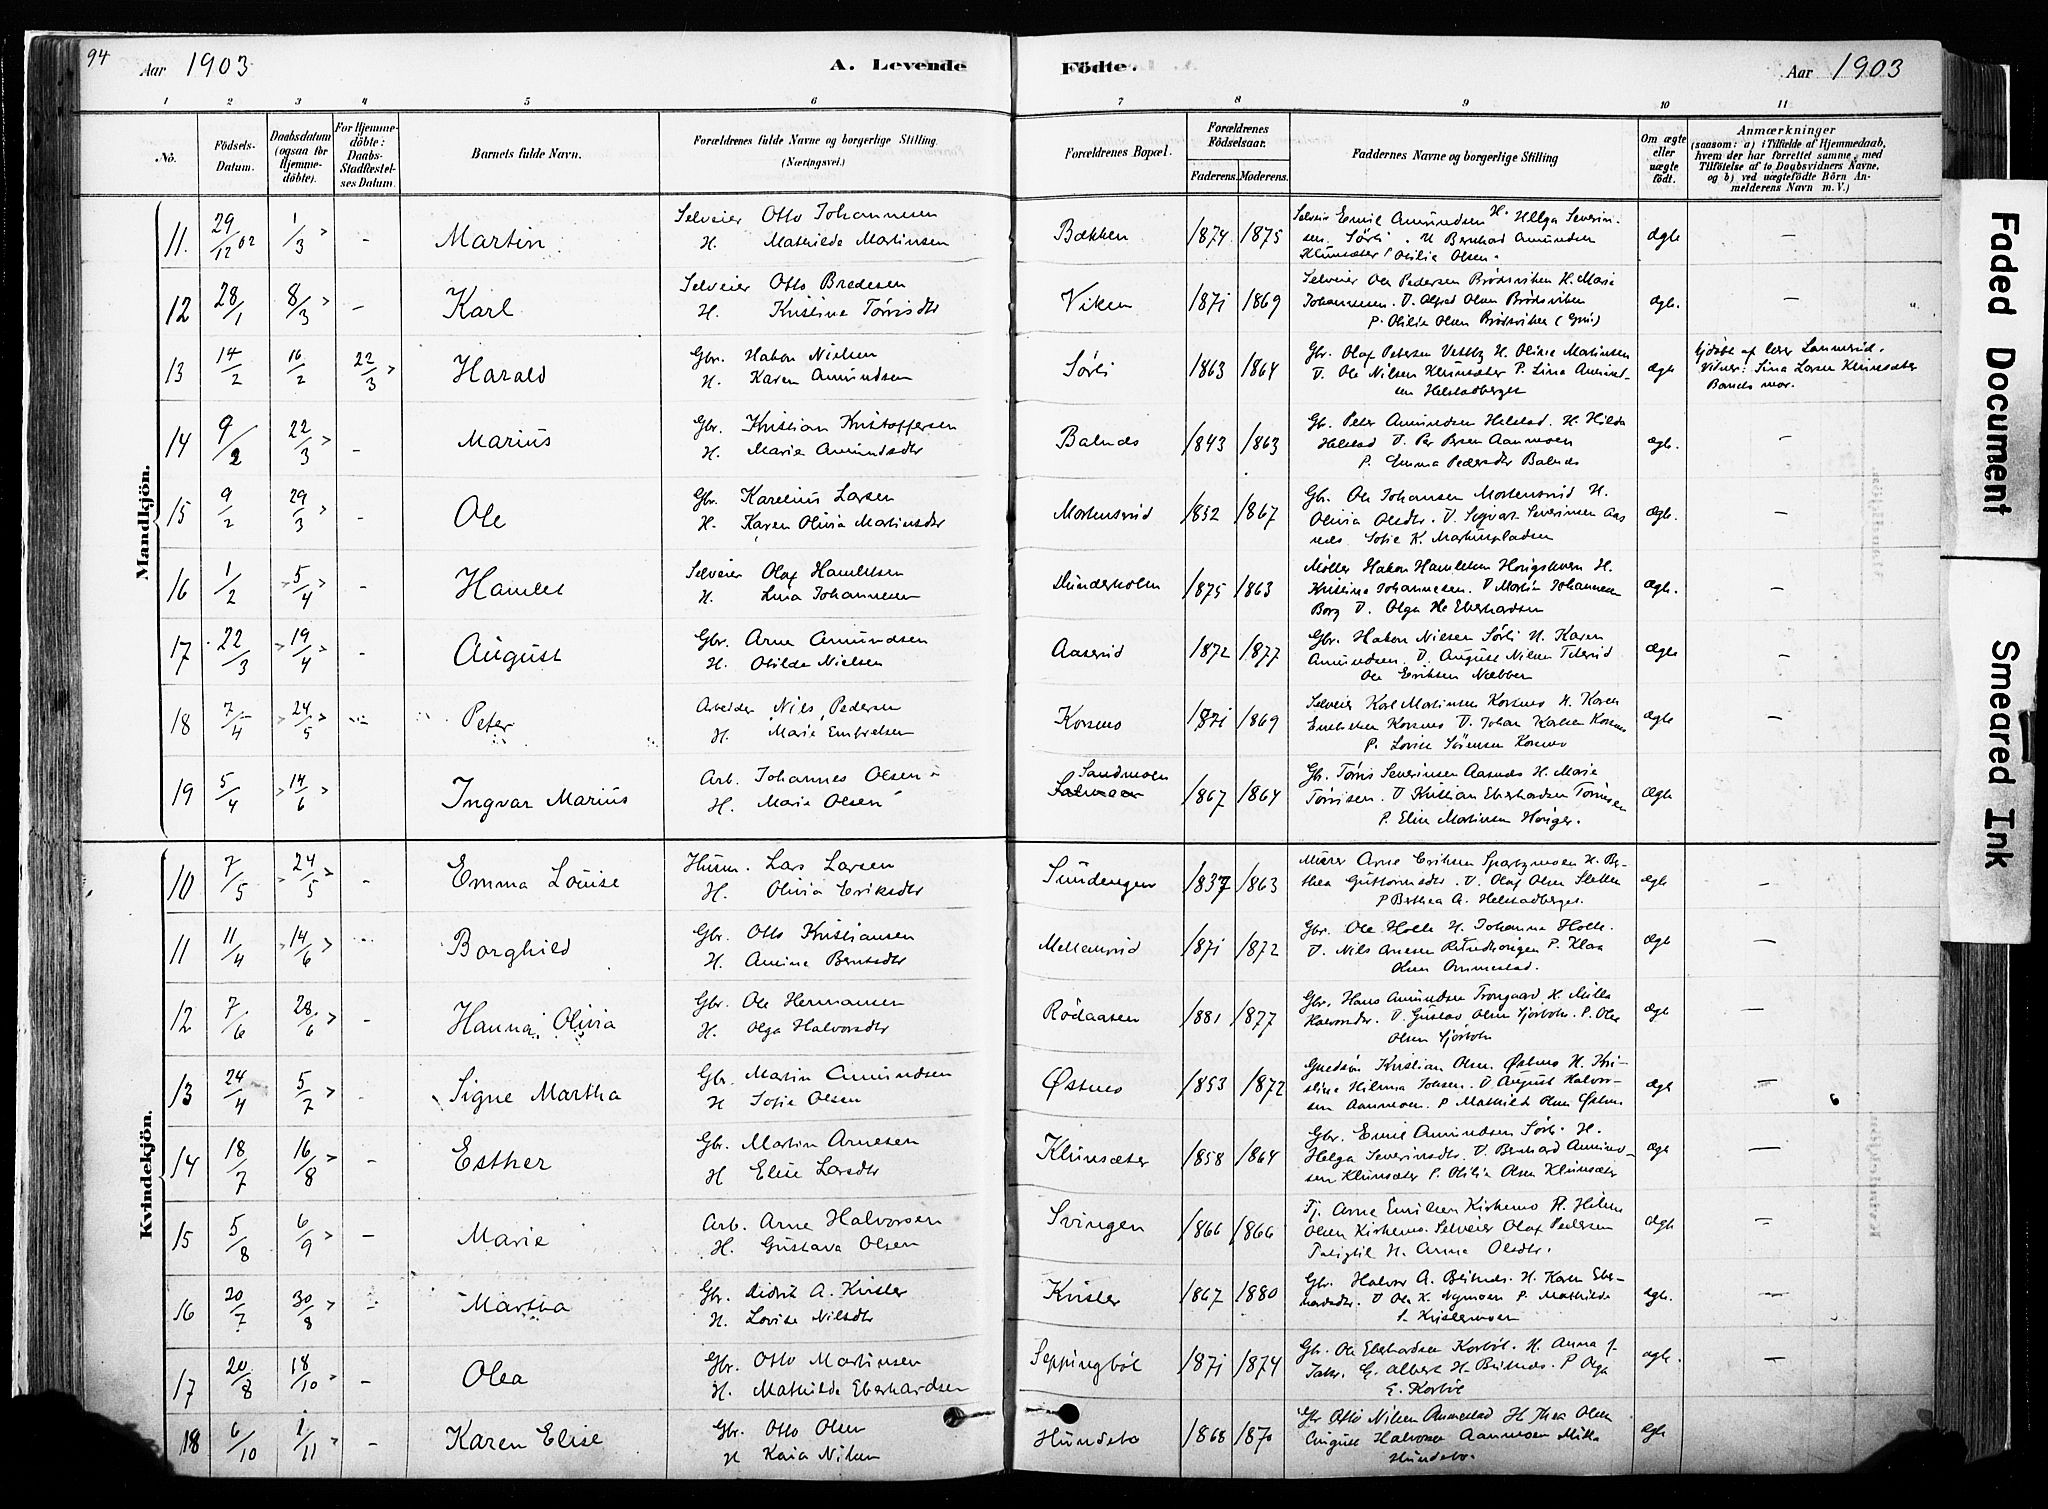 94
Aar 1903
A. Levende
Födte.
Aar 1903
1 2 3 4 5 6 7 8 9 10 11
No.
Födsels-Datum.
Daabsdatum (ogsaa for Hjemme-döbte).
For Hjemme-döbte: Daabs-Stadfæstel-ses Datum.
Barnets fulde Navn.
Forældrenes fulde Navne og borgerlige Stilling. (Næringsvei.)
Forældrenes Bopæl.
Forældrenes Födselsaar.
Faderens. Moderens.
Faddernes Navne og borgerlige Stilling
Om ægte eller uægte födt.
Anmærkninger
(saasom: a) i Tilfælde af Hjemmedaab, hvem der har forrettet samme, med Tilföielse af to Daabsvidners Navne, og b) ved uægtefödte Börn An-melderens Navn m. V.)
Mandkjön.
11. 29/12 02 1/3 - Martin
Selveier Otto Johannesen
H. Mathilde Martinsen
Bækken 1874 1875
Selveier Emil Amundsen H. Helga Severin-
sen Sørli. U Bernhard Amundsen
Klunsæter P Otilie Olsen.
ægte -
12 28/1 8/3 - Karl
Selveier Otto Bredesen
H. Kristine Tørrisdtr
Viken 1871 1869
Selveier Ole Pedersen Brödsviken H. Marie
Johannesen. U. Alfred Olsen Brödsviken
P. Otilie Olsen Brödsviken
ægte. -
13 14/2 16/2 22/3 Harald
Gbr. Hakon Nielsen
H. Karen Amundsen
Sørli 1863 1864
Gbr. Olaf Petersen Vestby H. Oline Martinsen
U. Ole Nilsen Klunsæter P. Lina Amund-
sen Helstadberget
ægte
hjdøbt af lærer
Vidner: Lina Larsen Klunsæter
Barnets mor.
14 9/2 22/3 - Marius
Gbr. Kristian Kristoffersen
H. Marie Amundsdtr
Balnds 1843 1863
Gb. Peter Amundsen Helstad. H. Hilda
Helstad U. Per Persen Aanmoen
P. Emma Pedersdtr Balnds
ægte. -
15 9/2 29/3 - Ole
Gbr. Karelius Larsen
H. Karen Olivia Martinsdtr
Mortensrud 1852 1867
Gbr. Ole Johansen Mortensrud H.
Olivia Olsdtr. U. Sigvart Severinsen Aas
næs Sofie K. Martinspladsen
ægte. -
16 1/2 5/4 - Hamlet
Selveier Olaf Hamletsen
H. Lina Johannesen
1875 1863
Møller Hakon Hamletsen H.
Kristine Johannesen. U Martin Johannesen
Borg U. Olga H. Eberhardsen
ægte. -
17 22/3 19/4 - August
Gbr. Arne Amundsen
H. Otilde Nielsen
Aaserud 1872 1877
Gbr. Hakon Nielsen Sørli H. Karen
Amundsen. U. August Nilsen
Ole Eriksen Næbben
ægte -
18 7/4 24/5 - Peter
Arbeider Nils Pedersen
H. Marie Embretsen
Korsmo 1871 1869
Selveier Karl Martinsen Korsmo H. Karen
Embretsen Korsmo U. Johan Karlsen Korsmo
P. Lovise Sörensen Korsmo
ægte -
19 5/4 14/6 Ingvar Marius
Arb. Johannes Olsen
H. Marie Olsen
Sandmoen 1867 1864
Gb. Tørris Severinsen Aasnæs H. Marie
Tørrisen. U Kristian Eberhardsen Tørrisen
P. Eline Martinsen Høiger.
ægte -
Kvindekjön.
10 7/5 24/5 - Emma Louise
Husm. Lars Larsen
H. Olivia Eriksdtr
Sundengen 1837 1863
Murer Arne Eriksen H. Be-
thea Guttormsdtr. U. Olaf Olsen Sletten
P Berthea A. Helstadberget.
ægte -
11 11/4 14/6 - Borghild
Gbr. Otto Kristiansen
H. Amine Berntsdtr
Mellemrud 1871 1872
Gbr. Ole Holth H. Johanna Holth.
U. Nils Arnesen P. Klara
Olsen Ommestad.
ægte -
12 7/6 28/6 - Hanna Olivia
Gbr. Ole Hermansen
H. Olga Halvorsdtr
Rödaasen 1881 1877
Gbr. Hans Amundsen Trongaard H. Milla
Halvorsdtr. U. Gustav Olsen P. Olea
Olsen
ægte -
13 24/4 5/7 Signe Martha
Gbr. Martin Amundsen
H Sofie Olsen
Østmo 1853 1872
Kristian Olsen Østmo H. Kri-
stine Hilma Johsen. U August Halvor-
sen Aanmoen. P Mathilde Olsen Østmo
ægte -
14 18/7 16/8 - Esther
Gbr. Martin Arnesen
H Elise Larsdtr
Klunsæter 1858 1864
Gbr. Emil Amundsen Sørli. H.
Helga Severinsdtr. U. Bernhard Amund-
sen Klunsæter P. Otilia Olsen Klunsæter
ægte -
15 5/8 6/9 - Marie
Arb. Arne Halvorsen
H. Gustava Olsen
Svingen 1866 1866
Tj. Arne Emilsen Kirkemo H. Hilma
Olsen Kirkemo. Selveier Olaf Pedersen
H. Anna Olsdtr.
ægte -
16 20/7 30/8 - Martha
Gbr. Didrik A. Kisler
H. Lovise Nilsdtr
Kisler 1867 1880
Gbr. Halvor A. H. Karen Eber-
hardsdtr. U Ole K. Nymoen P. Mathilde
ægte. -
17 20/8 18/10 - Olea
Gbr. Otto Martinsen
H. Mathilde Eberhardsen
Seppingböl 1871 1874
Gbr. Ole Eberhardsen Korböl. H. Anna J.
G. Albert H. P Olga
E. Korböl
ægte. -
18 6/10 1/11 - Karen Elise
Gbr. Otto Olsen
H Kaia Nilsen
Hundebo 1868 1870
Gbr Otto Nilsen Ommestad H. Thea Olsen
August Halvorsen Aanmoen Milla
Hundebo.
ægte -
Faded Document
Smeared Ink